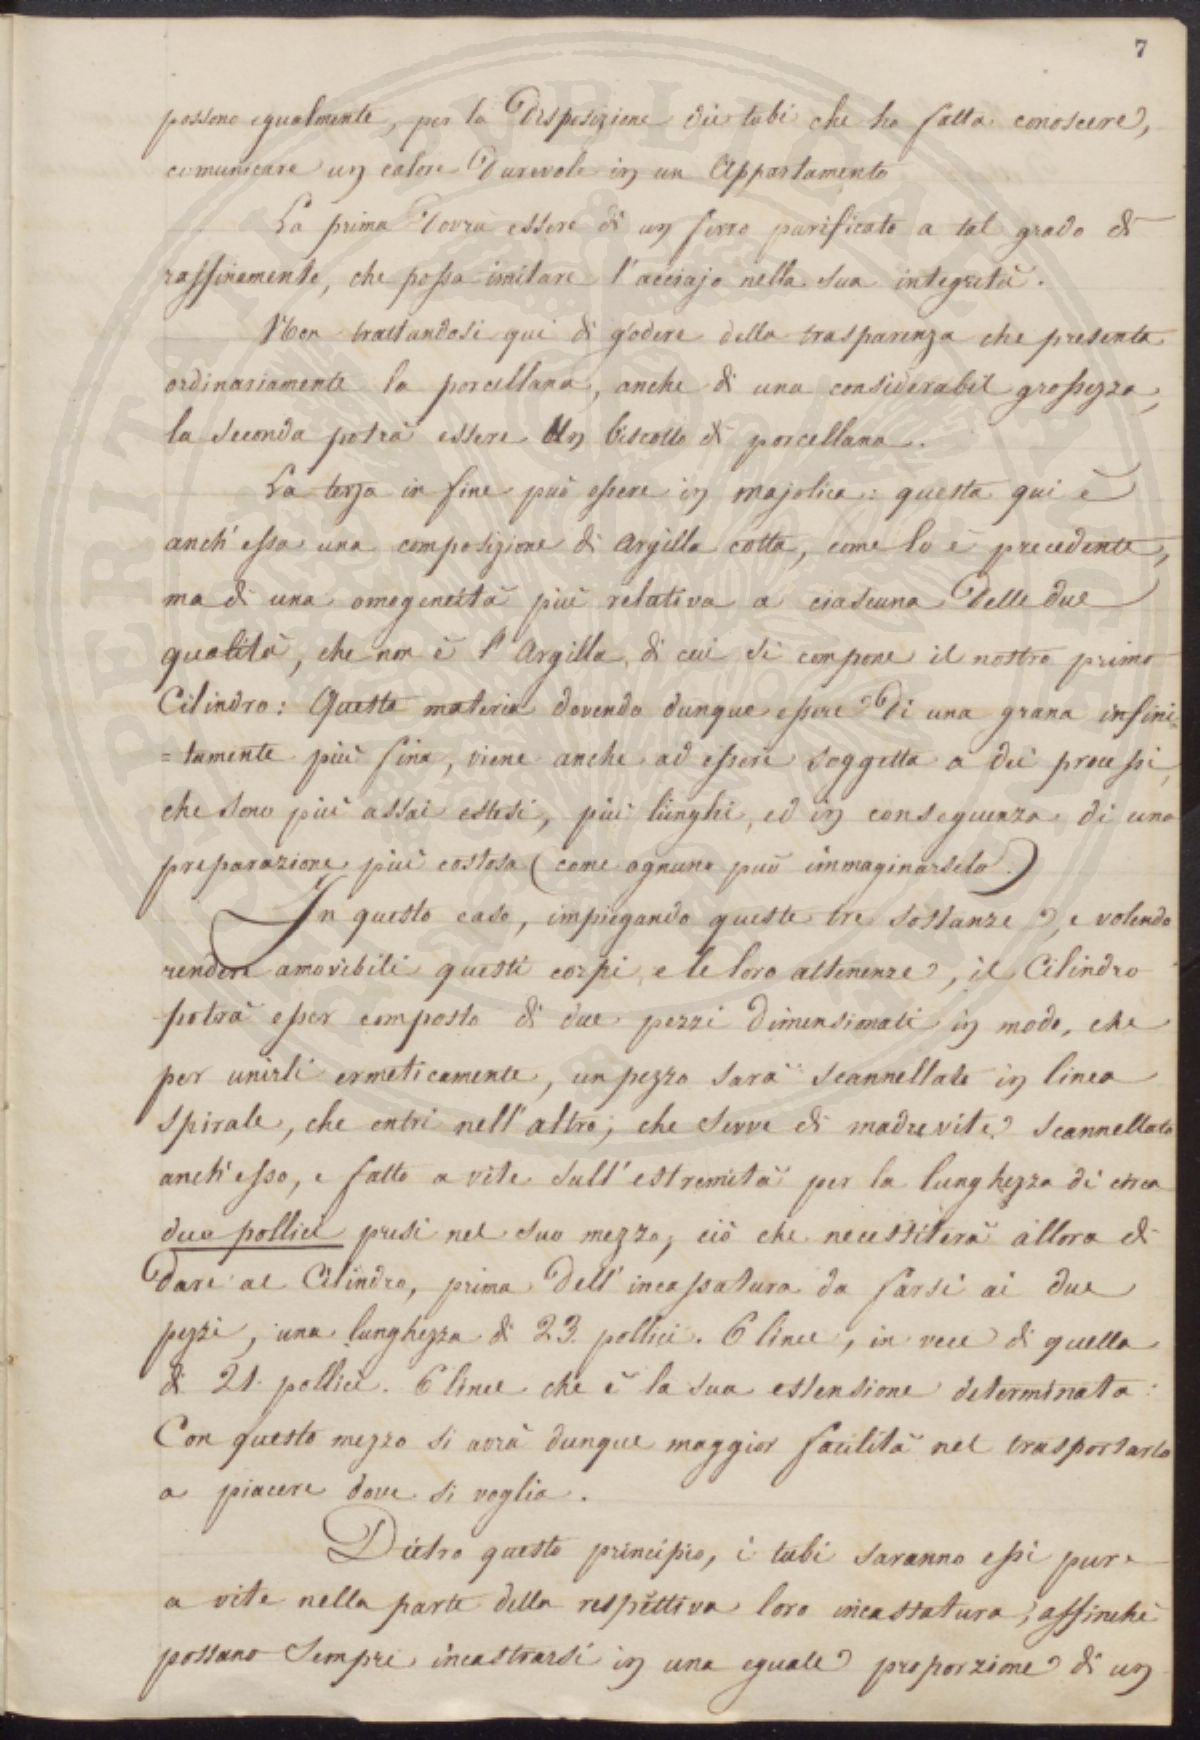 7
possono egualmente, per la Disposizione dei tubi che ho fatta conoscere,
comunicare un calore Durevole in un Appartamento
La prima Dovrà essere di un ferro purificato a tal grado di
raffinamento, che possa imitare l'acciajo nella sua integrità.
Non trattandosi qui di godere della trasparenza che presenta
ordinariamente la porcellana, anche di una considerabil grossezza,
la seconda potrà essere Un biscotto di porcellana.
La terza in fine può essere in majolica: questa qui è
anch'essa una composizione di Argilla cotta, come lo è precedente,
ma di una omogeneità più relativa a ciascuna Delle due
qualità, che non è l'Argilla di cui si compone il nostro primo
Cilindro: Questa materia dovendo dunque essere Di una grana infini=
=tamente più fina, viene anche ad essere soggetta a dei processi,
che sono più assai estesi, più lunghi, ed in conseguenza di una
preparazione più costosa (come ognuno può immaginarselo.)
In questo caso, impiegando queste tre sostanze, e volendo
rendere amovibili questi corpi e le loro attenenze, il Cilindro
potrà esser composto di due pezzi Dimensionati in modo, che
per unirli ermeticamente, un pezzo sarà scannellato in linea
spirale, che entri nell'altro, che serve di madrevite scannellato
anch'esso, e fatto a vite sull'estremità per la lunghezza di circa
due pollici presi nel suo mezzo, ciò che necessiterà allora di
Dare al Cilindro, prima Dell'incassatura da farsi ai due
pezzi, una lunghezza di 23. pollici. 6 linee, in vece di quella
di 21. pollici. 6 linee che è la sua estensione determinata:
Con questo mezzo si avrà dunque maggior facilità nel trasportarlo
a piacere dove si voglia.
Dietro questo principio, i tubi saranno essi pure
a vite nella parte della respettiva loro incassatura, affinchè
possano sempre incastrarsi in una eguale proporzione di un